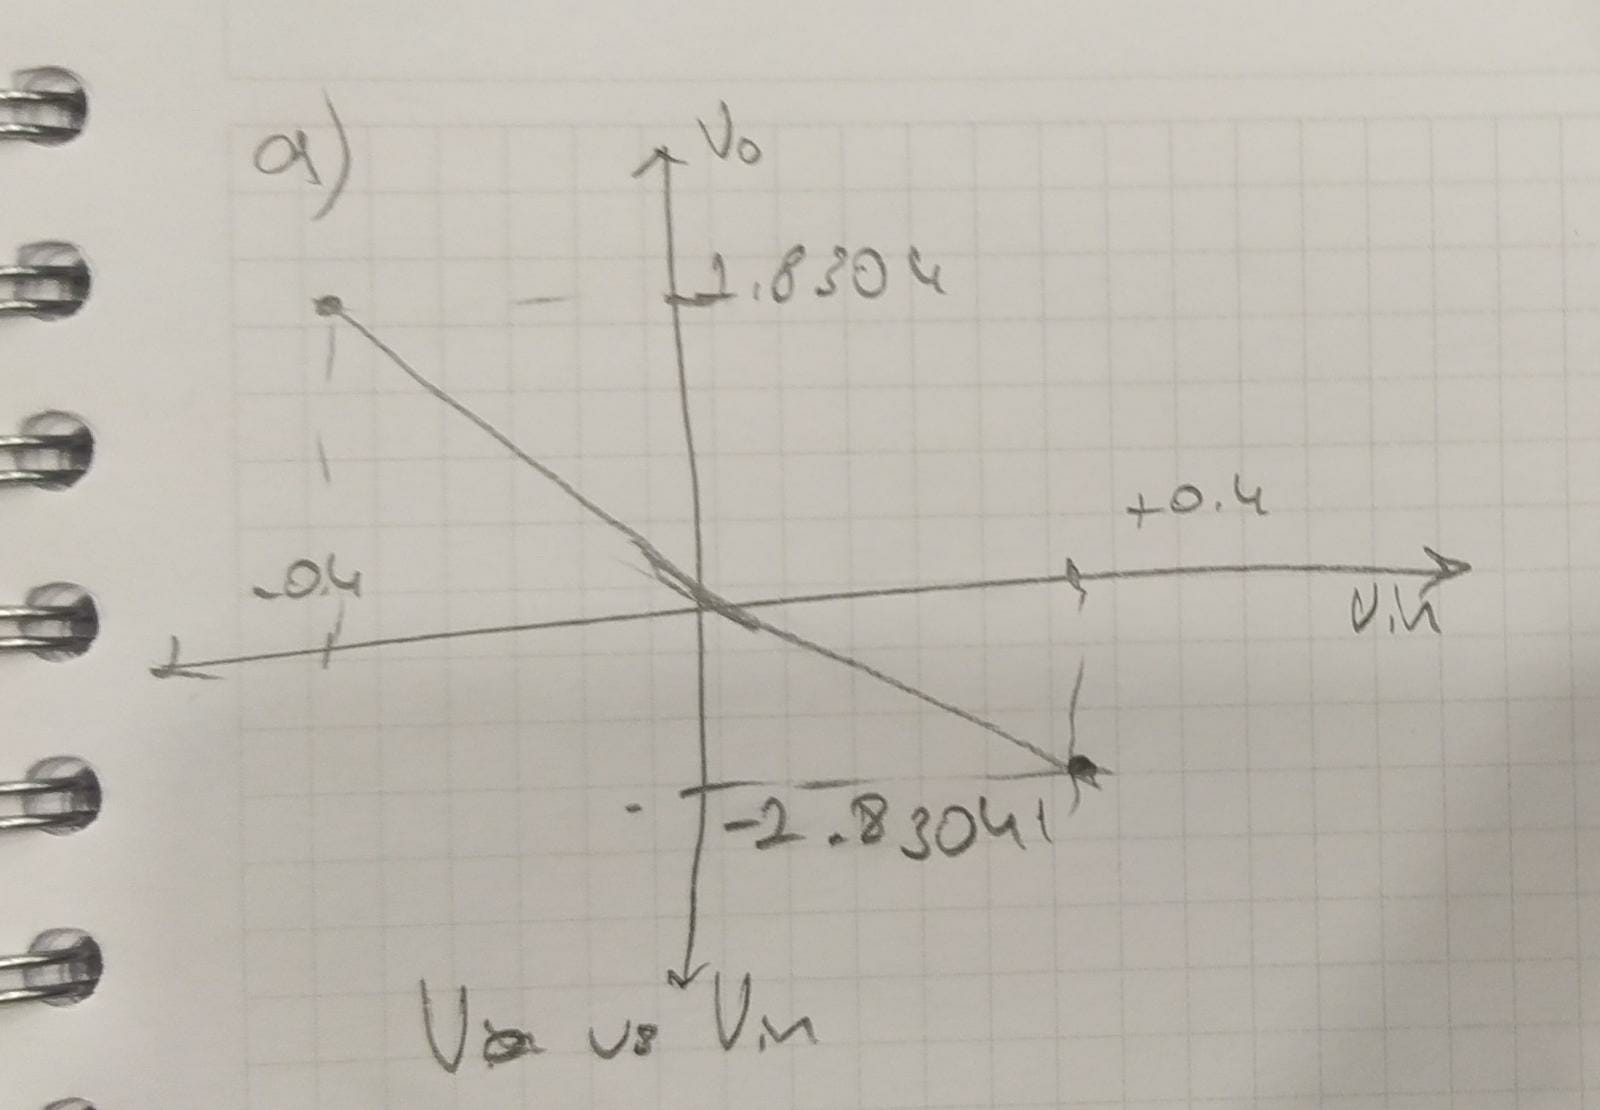 a)
Vo
2.8304
+0.4
-0.4
Vin
-2.83041
Vo vs Vin